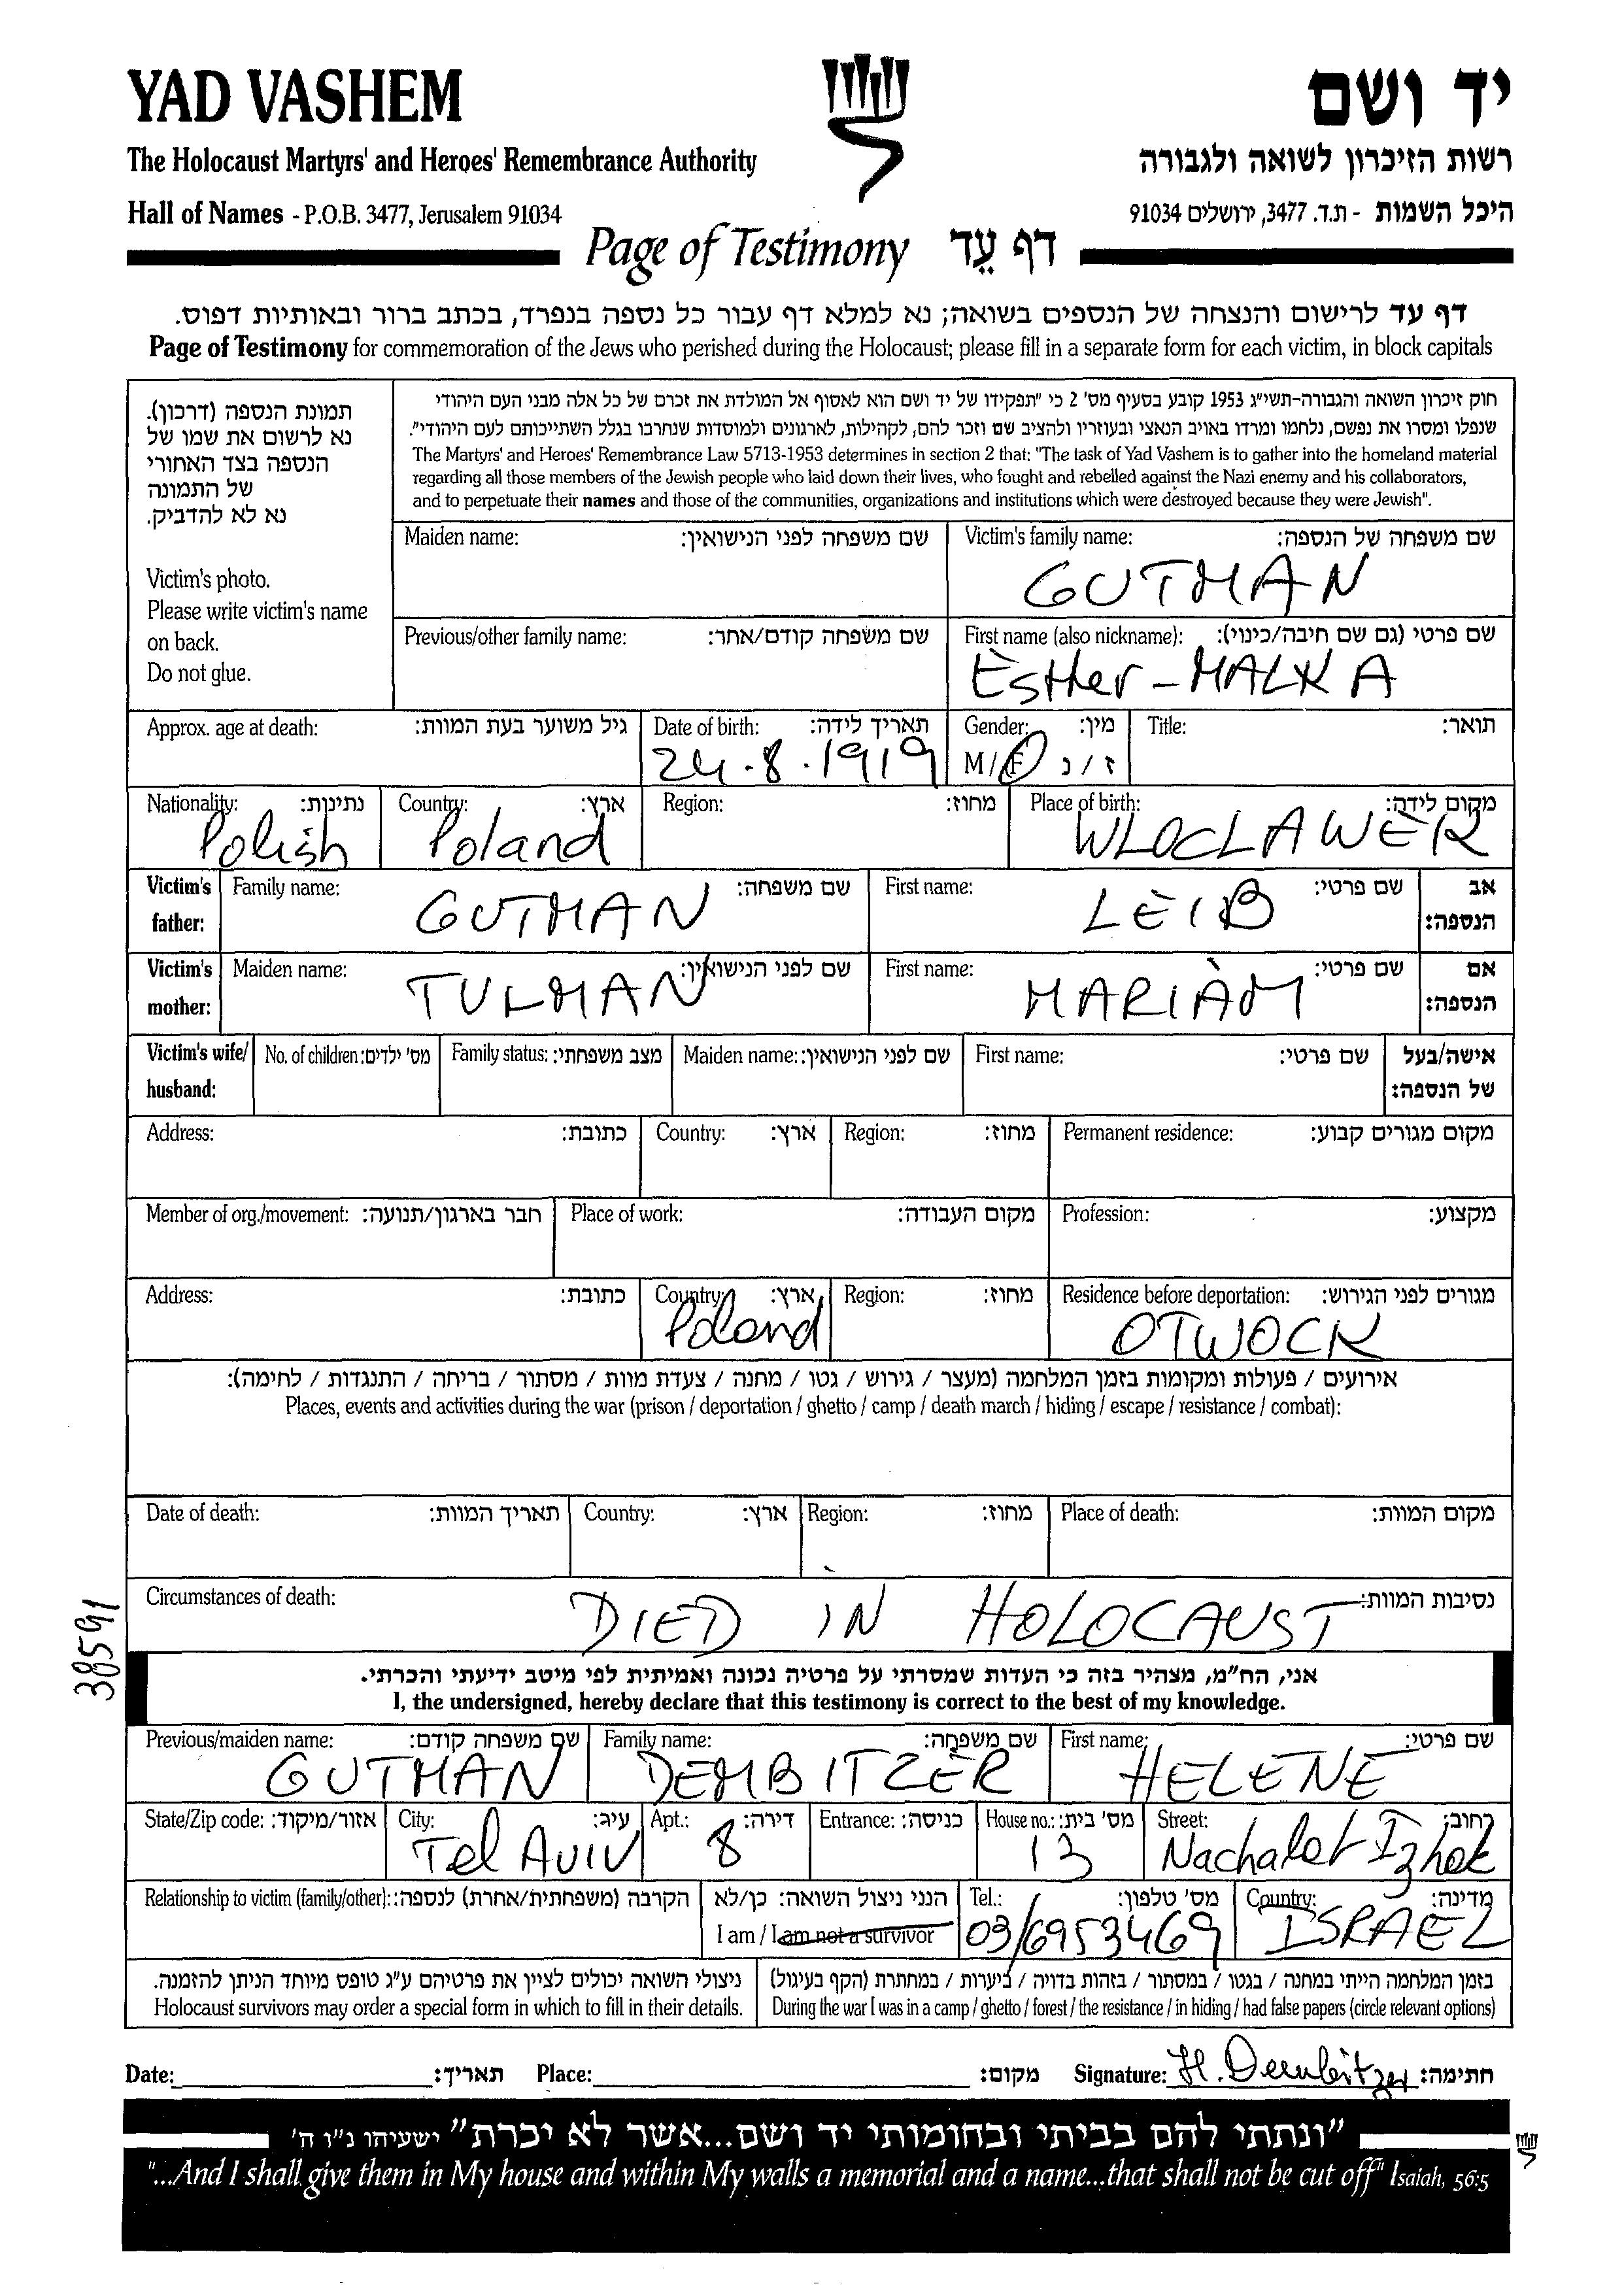 YAD VASHEM
יד ושם
The Holocaust Martyrs' and Heroes' Remembrance Authority
רשות הזיכרון לשואה ולגבורה
Hall of Names - P.O.B. 3477, Jerusalem 91034
היכל השמות - ת.ד. 3477, ירושלים 91034
Page of Testimony דף עֵד
דף עד לרישום והנצחה של הנספים בשואה; נא למלא דף עבור כל נספה בנפרד, בכתב ברור ובאותיות דפוס.
Page of Testimony for commemoration of the Jews who perished during the Holocaust; please fill in a separate form for each victim, in block capitals
תמונת הנספה (דרכון).
נא לרשום את שמו של
הנספה בצד האחורי
של התמונה
נא לא להדביק.
Victim's photo.
Please write victim's name
on back.
Do not glue.
חוק זיכרון השואה והגבורה-תשי"ג 1953 קובע בסעיף מס' 2 כי "תפקידו של יד ושם הוא לאסוף אל המולדת את זכרם של כל אלה מבני העם היהודי
שנפלו ומסרו את נפשם, נלחמו ומרדו באויב הנאצי ובעוזריו ולהציב שם וזכר להם, לקהילות, לארגונים ולמוסדות שנחרבו בגלל השתייכותם לעם היהודי".
The Martyrs' and Heroes' Remembrance Law 5713-1953 determines in section 2 that: "The task of Yad Vashem is to gather into the homeland material
regarding all those members of the Jewish people who laid down their lives, who fought and rebelled against the Nazi enemy and his collaborators,
and to perpetuate their names and those of the communities, organizations and institutions which were destroyed because they were Jewish".
Maiden name: שם משפחה לפני הנישואין:
Victim's family name: שם משפחה של הנספה:
GUTMAN
Previous/other family name: שם משפחה קודם/אחר:
First name (also nickname): שם פרטי (גם שם חיבה/כינוי):
Esther-MALKA
Approx. age at death: גיל משוער בעת המוות:
Date of birth: תאריך לידה:
24.8.1919
Gender: מין:
M/F ז/נ
Title: תואר:
Nationality: נתינות:
Polish
Country: ארץ:
Poland
Region: מחוז:
Place of birth: מקום לידה:
WLOCLAWEK
Victim's father: Family name: שם משפחה:
GUTMAN
First name: שם פרטי:
LEIB
אב הנספה:
Victim's mother: Maiden name: שם לפני הנישואין:
TULMAN
First name: שם פרטי:
MARIAM
אם הנספה:
Victim's wife/ husband: No. of children: מס' ילדים: Family status: מצב משפחתי: Maiden name: שם לפני הנישואין: First name: שם פרטי: אישה/בעל של הנספה:
Address: כתובת: Country: ארץ: Region: מחוז: Permanent residence: מקום מגורים קבוע:
Member of org./movement: חבר בארגון/תנועה: Place of work: מקום העבודה: Profession: מקצוע:
Address: כתובת: Country: ארץ: Region: מחוז: Residence before deportation: מגורים לפני הגירוש:
Poland OTWOCK
אירועים / פעולות ומקומות בזמן המלחמה (מעצר / גירוש / גטו / מחנה / צעדת מוות / מסתור / בריחה / התנגדות / לחימה):
Places, events and activities during the war (prison / deportation / ghetto / camp / death march / hiding / escape / resistance / combat):
Date of death: תאריך המוות: Country: ארץ: Region: מחוז: Place of death: מקום המוות:
Circumstances of death: נסיבות המוות:
DIED IN HOLOCAUST
38591
אני, הח"מ, מצהיר בזה כי העדות שמסרתי על פרטיה נכונה ואמיתית לפי מיטב ידיעתי והכרתי.
I, the undersigned, hereby declare that this testimony is correct to the best of my knowledge.
Previous/maiden name: שם משפחה קודם: Family name: שם משפחה: First name: שם פרטי:
GUTMAN DEMBITZER HELENE
State/Zip code: אזור/מיקוד: City: עיר: Apt.: דירה: Entrance: כניסה: House no.: מס' בית: Street: רחוב:
Tel Aviv 8 13 Nachalat Izhak
Relationship to victim (family/other): הקרבה (משפחתית/אחרת) לנספה: הנני ניצול השואה: כן/לא Tel.: מס' טלפון: Country: מדינה:
I am / I am not a survivor 03/6953469 ISRAEL
ניצולי השואה יכולים לציין את פרטיהם ע"ג טופס מיוחד הניתן להזמנה.
Holocaust survivors may order a special form in which to fill in their details.
בזמן המלחמה הייתי במחנה / בגטו / במסתור / בזהות בדויה / ביערות / במחתרת (הקף בעיגול)
During the war I was in a camp / ghetto / forest / the resistance / in hiding / had false papers (circle relevant options)
Date: תאריך: Place: מקום: Signature: H. Dembitzer חתימה:
"ונתתי להם בביתי ובחומותי יד ושם...אשר לא יכרת" ישעיהו נ"ו ה'
"...And I shall give them in My house and within My walls a memorial and a name...that shall not be cut off" Isaiah, 56:5